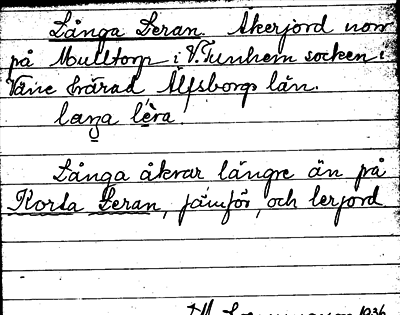 Långa Leran. Åkerjord norr
på Mulltorp i V. Tunhem socken i
Väne härad Älfsborgs län.
laŋa lè̱ra.
Långa åkrar längre än på
Korta Leran, jämför, och lerjord
1936